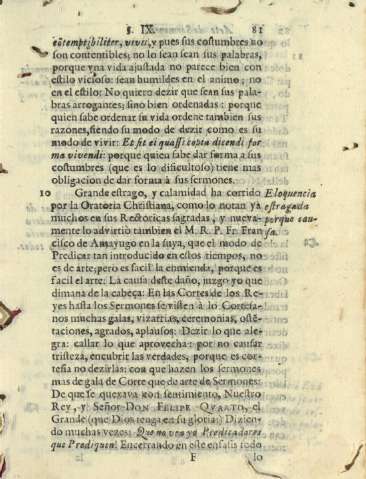 §. IX. 81
cõtemptibiliter, vivis, y pues sus costumbres no
son contentibles, no lo sean sean sus palabras,
porque vna vida ajustada no parece bien con
estilo vicioso: sean humildes en el animo; no
en el estilo: No quiero dezir que sean sus pala-
bras arrogantes; sino bien ordenadas: porque
quien sabe ordenar su vida ordene tambien sus
razones, siendo su modo de dezir como es su
modo de vivir: Et sit ei quassi copta dicendi for
ma vivendi: porque quien sabe dar forma a sus
costumbres (que es lo dificultoso) tiene mas
obligacion de dar forma à sus sermones.
10 Grande estrago, y calamidad ha corrido Eloquencia
por la Oratoria Christiana, como lo notan ya estragada
muchos en sus Rectoricas sagradas, y nueva- porque cau-
mente lo advirtiò tambien el M. R. P. Fr. Fran sa.
cisco de Amayugo en la suya, que el modo de
Predicar tan introducido en estos tiempos, no
es de arte; pero es facil la enmienda, porque es
facil el arte: La causa deste daño, juzgo yo que
dimana de la cabeça: En las Cortes de los Re-
yes hasta los Sermones se visten à lo Cortesa-
nos muchas galas, vizarrias, ceremonias, ostẽ-
taciones, agrados, aplausos: Dezir lo que ale-
gra: callar lo que aprovecha: por no causar
tristeza, encubrir las verdades, porque es cor-
tesia no dezirlas: con que hazen los sermones
mas de gala de Corte que de arte de Sermones:
De que se quexava con sentimiento, Nuestro
Rey, y Señor DON FELIPE QVARTO, el
Grande (que Dios tenga en su gloria:) Dizien-
do muchas vezes: Que no vea yo Predicadores
que Prediquen! Encerrando en este enfasis todo
F lo